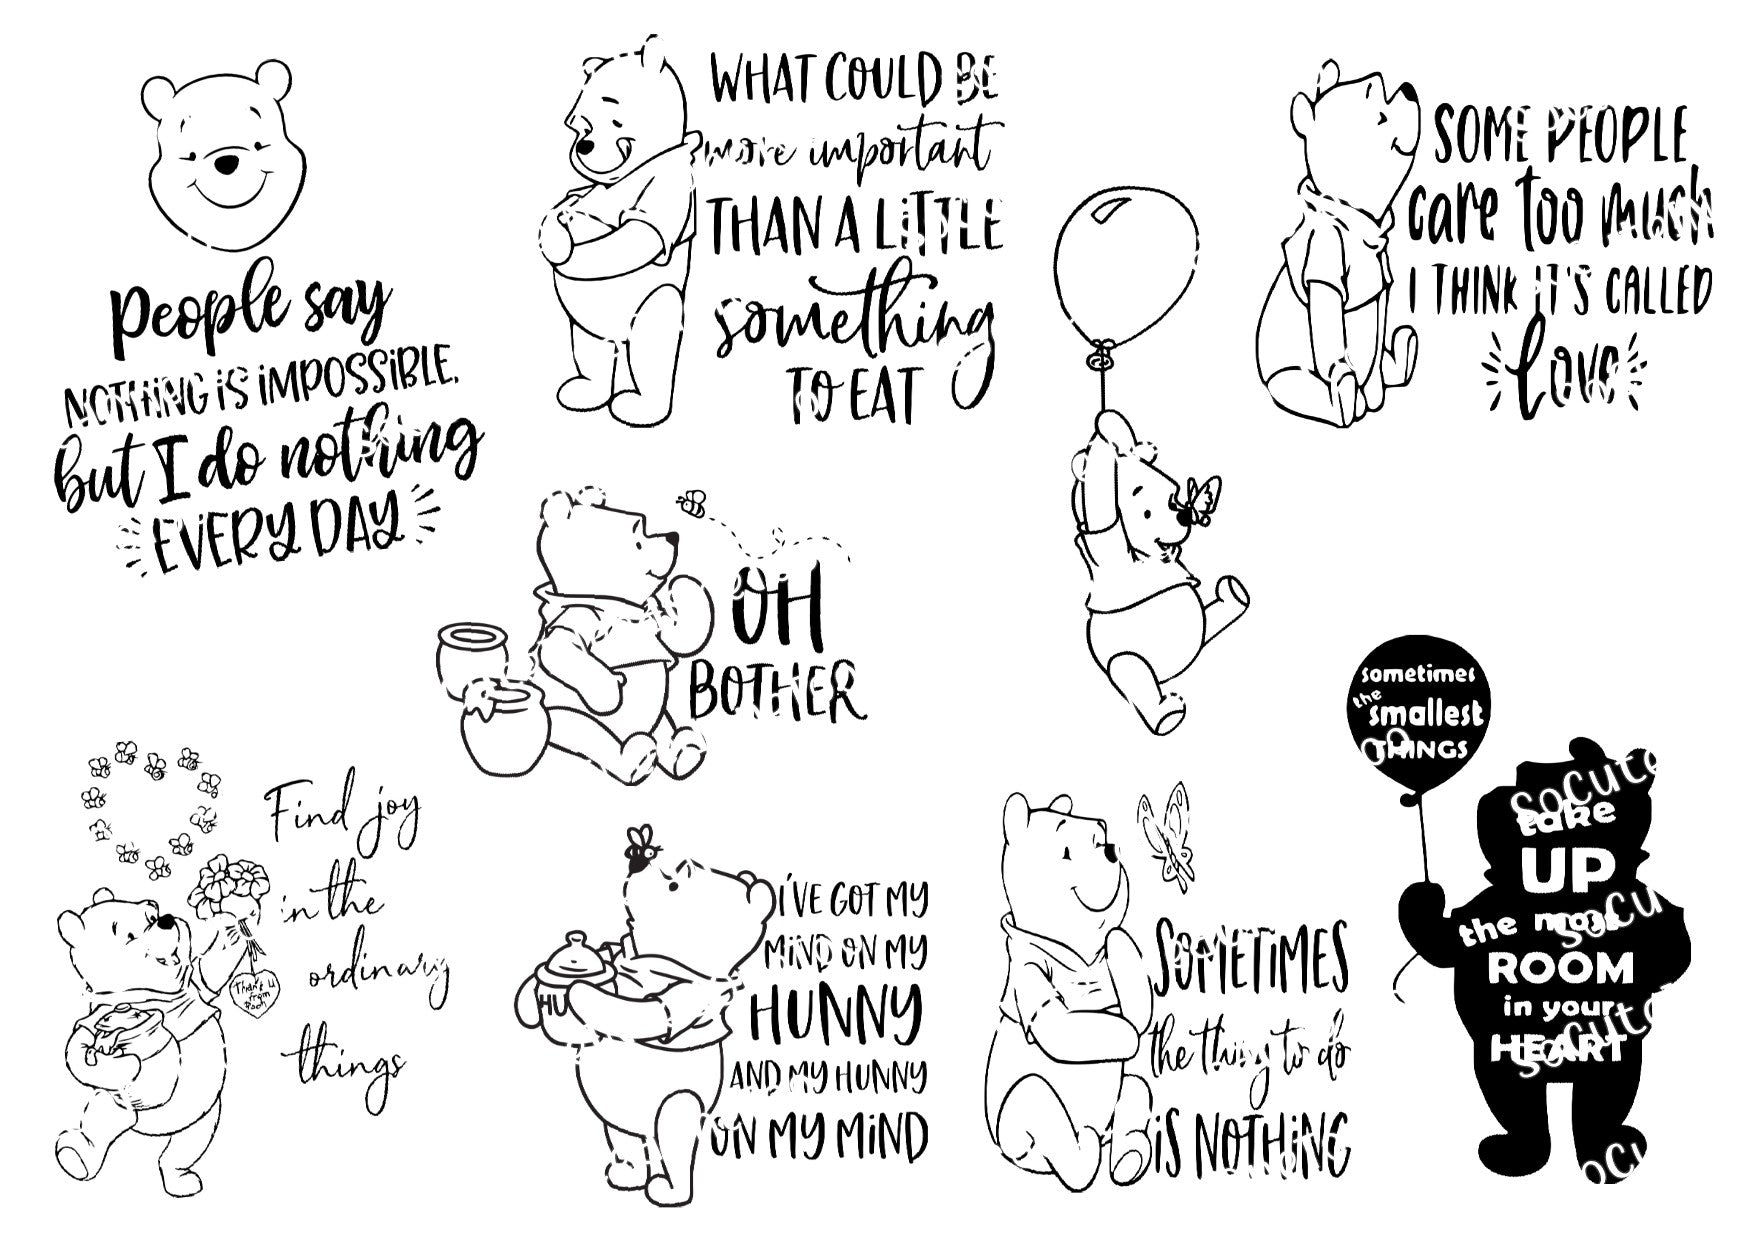 People say
NOTHING IS IMPOSSIBLE,
but I do nothing
EVERY DAY
WHAT COULD BE
more important
THAN A LITTLE
something
TO EAT
SOME PEOPLE
care too much
I THINK IT'S CALLED
love
OH
BOTHER
Find joy
in the
ordinary
things
Thank u
from
Pooh
HU
I'VE GOT MY
MIND ON MY
HUNNY
AND MY HUNNY
ON MY MIND
SOMETIMES
the thing to do
IS NOTHING
sometimes
the
smallest
THINGS
take
UP
the most
ROOM
in your
HEART
SoCute